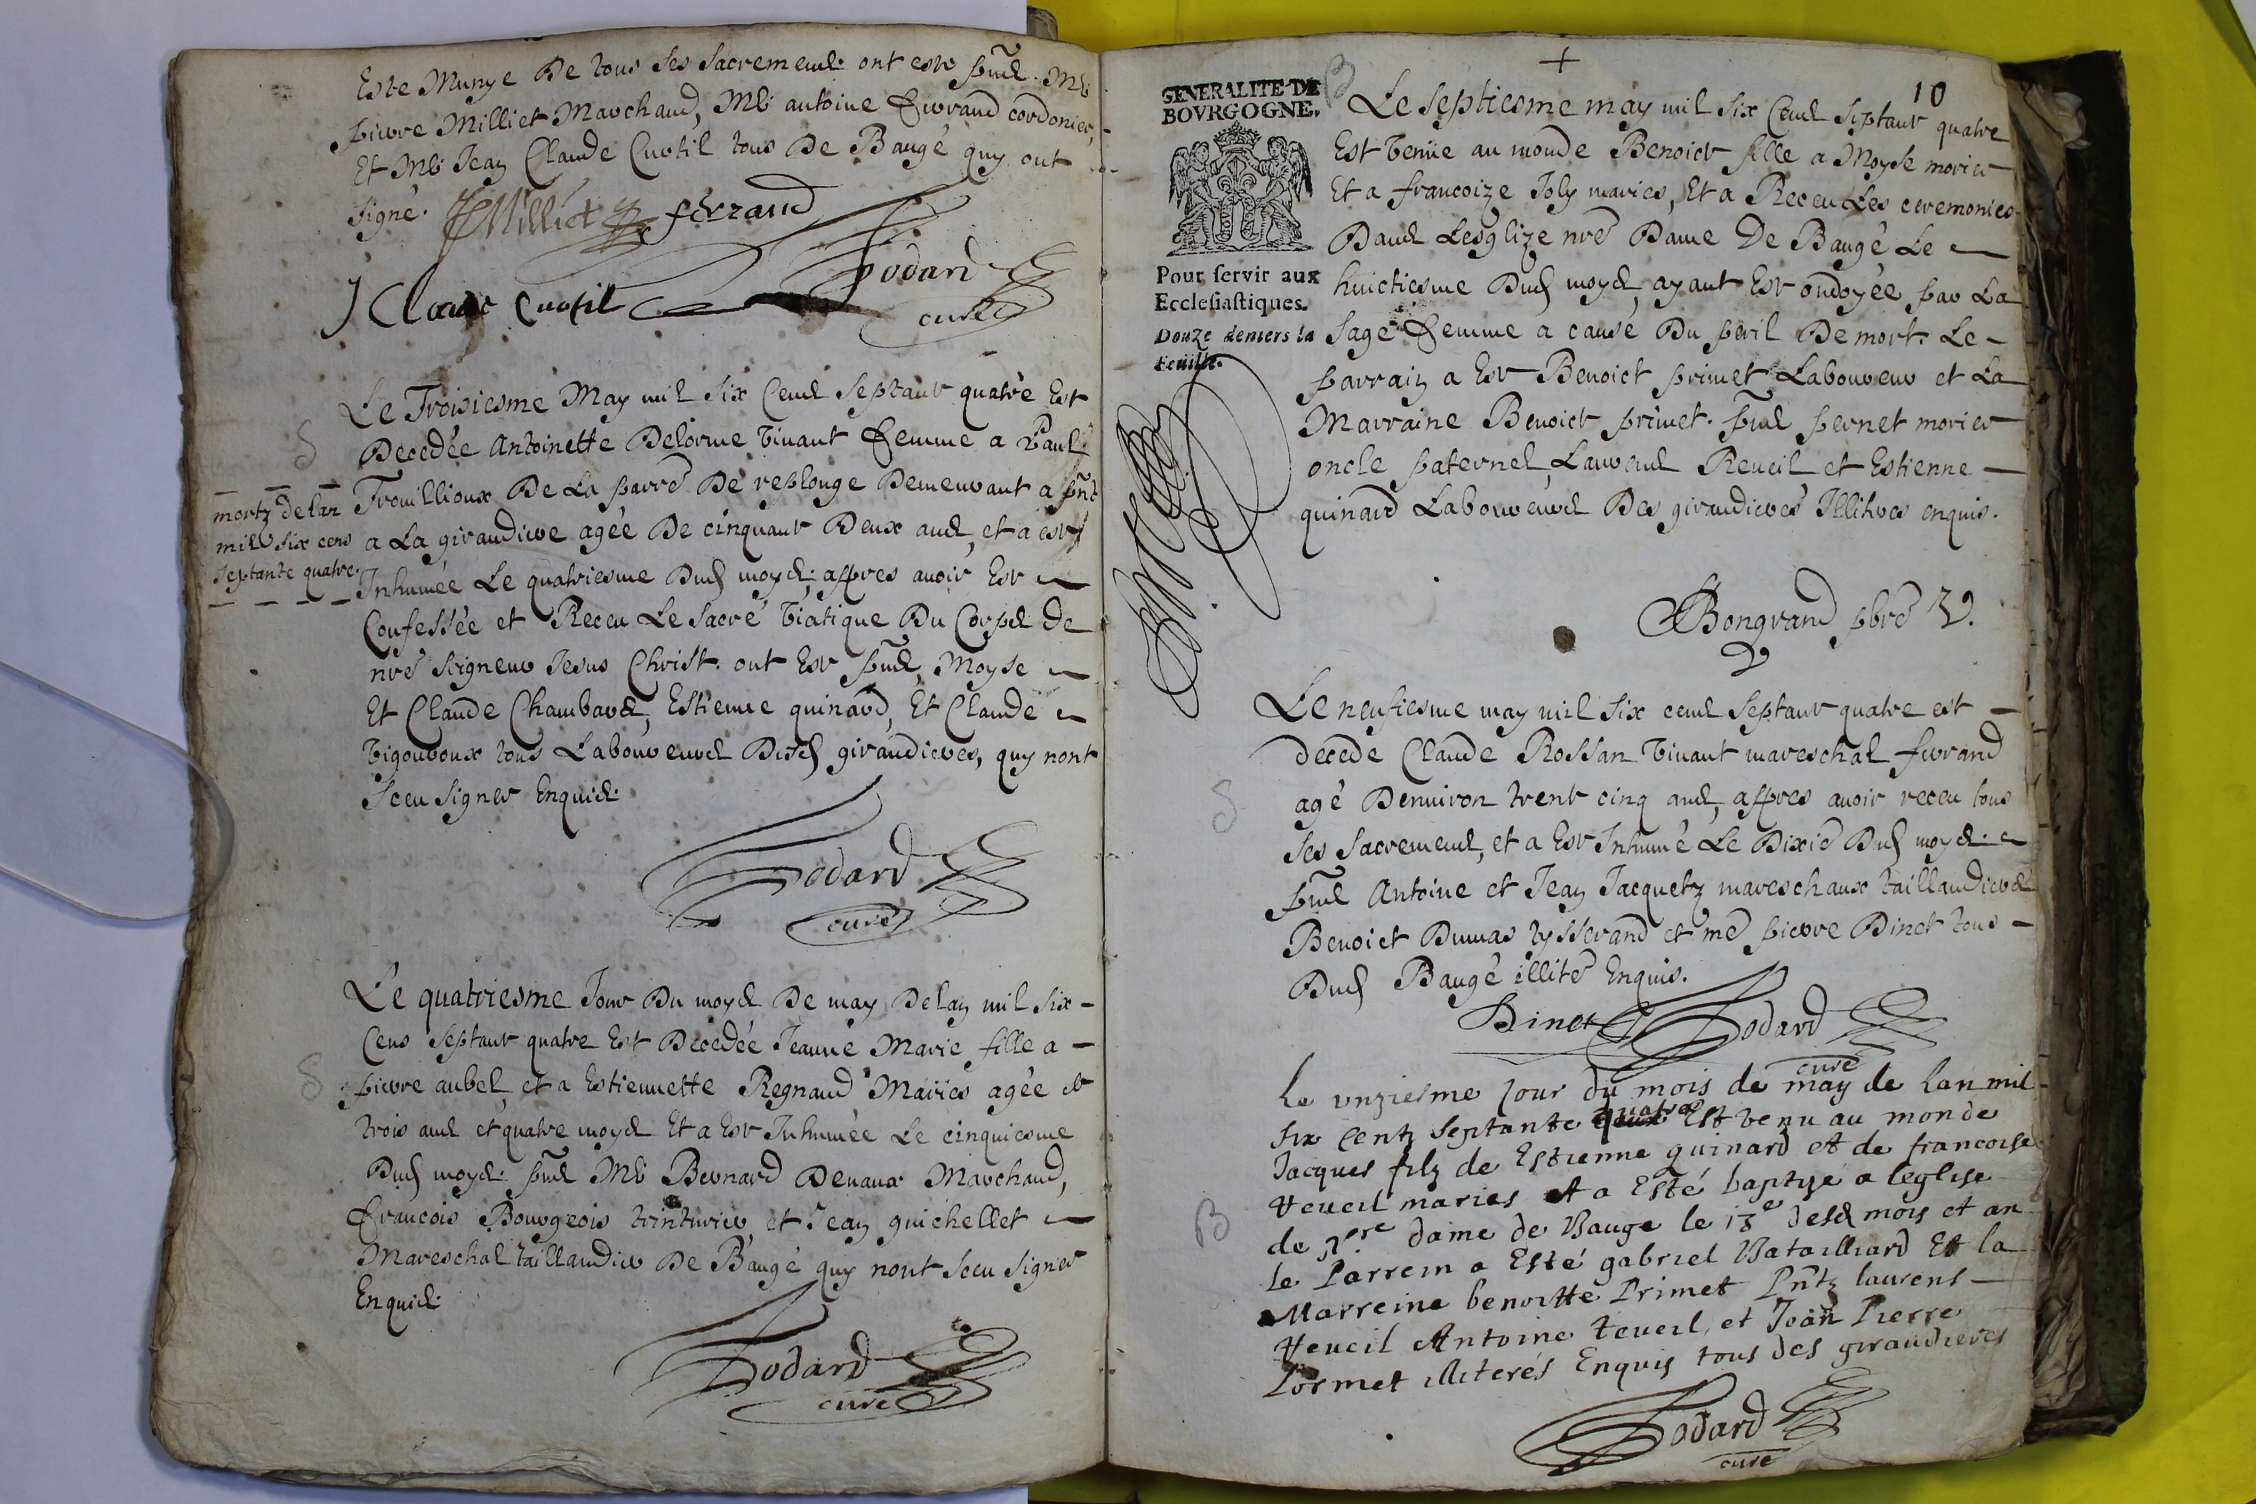 Este Munye De tous ses sacremens ont este pñs Me
pierre Milliet Marchand, Me antoine ferrand cordonier,
Et Me Jean Claude Curtil tous De Baugé quy ont
signé. JMilliet ferrand
Jodard
curé
J Claude Curtil
Le Troisiesme May mil six Cens septante quatre Est
Decedée Antoinette Delorme vivant femme a Paul
Trouillioux De La parre De replonge Demeurant a pñt
a La giraudiere agée De cinquante Deux ans, et a esté
Inhumée Le quatriesme Dud moys apres avoir Esté
Confessée et Receu Le sacré viatique Du Corps De
nre seigneur Jesus Christ. ont Esté pñs Moyse
Et Claude Chambard, Estienne quinard, Et Claude
vigouroux tous Laboureurs Desd giraudieres, quy nont
sceu signer Enquis.
mortz de lan
mil six cens
septante quatre.
Jodard
curé
Le quatriesme Jour Du moys De may De lan mil six
Cens septante quatre Est Decedée Jeanne Marie fille a
pierre aubel et a Estiennette Regnaud Mariés agée de
trois ans et quatre moys Et a Esté Inhumée Le cinquiesme
Dud moys. pñs Me Bernard Devaux Marchand,
francois Bourgeois tinturier et Jean guichellet
Mareschal taillandier De Baugé quy nont sceu signer
Enquis.
Jodard
curé
10
GENERALITE DE
BOVRGOGNE.
Pour servir aux
Ecclesiastiques.
Douze deniers la
Feüille.
B
Le septiesme may mil six Cens septante quatre
Est venüe au monde Benoicte fille a Moyse morier
Et a francoize Joly mariés, Et a Receu Les ceremonies
Dans Lesglize nre Dame De Baugé Le
huictiesme Dud moys, ayant Esté ondoyée par La
sage femme a cause Du peril De mort. Le
parrain a Esté Benoict primet Laboureur et La
Marraine Benoicte primet. pñs pernet morier
oncle paternel, Laurens Reveil et Estienne
quinard Laboureurs Des giraudieres Illitres enquis.
Bongrand pbre V.
Le neufiesme may mil six cens septante quatre est
decede Claude Rossan vivant mareschal ferrand
agé Denviron trente cinq ans, apres avoir receu tous
ses sacremens, et a Esté Inhumé Le Dixie Dud moys.
pñs Antoine et Jean Jacquetz mareschaux taillandiers
Benoict Dumas tysserand et me pierre Dinet tous
Dud Baugé illité Enquis.
Dinet Jodard
curé
Le unziesme jour du mois de may de lan mil
six centz septante quatre Est venu au monde
Jacques filz de Estienne quinard et de francoise
Reveil mariés et a Esté baptizé a leglise
B
de nre dame de Bauge le 13e desd mois et an
le Parrein a Esté gabriel Batailliard Et la
Marreine benoitte Primet Pntz laurens
Reveil Antoine Reveil, et Jean Pierre
Pormet illiterés Enquis tous des giraudieres
Jodard
curé